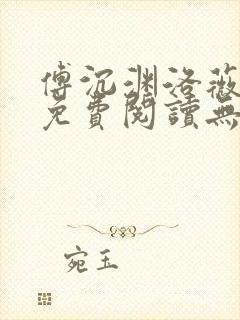 傅沉渊洛薇
免費閱讀無
宛玉